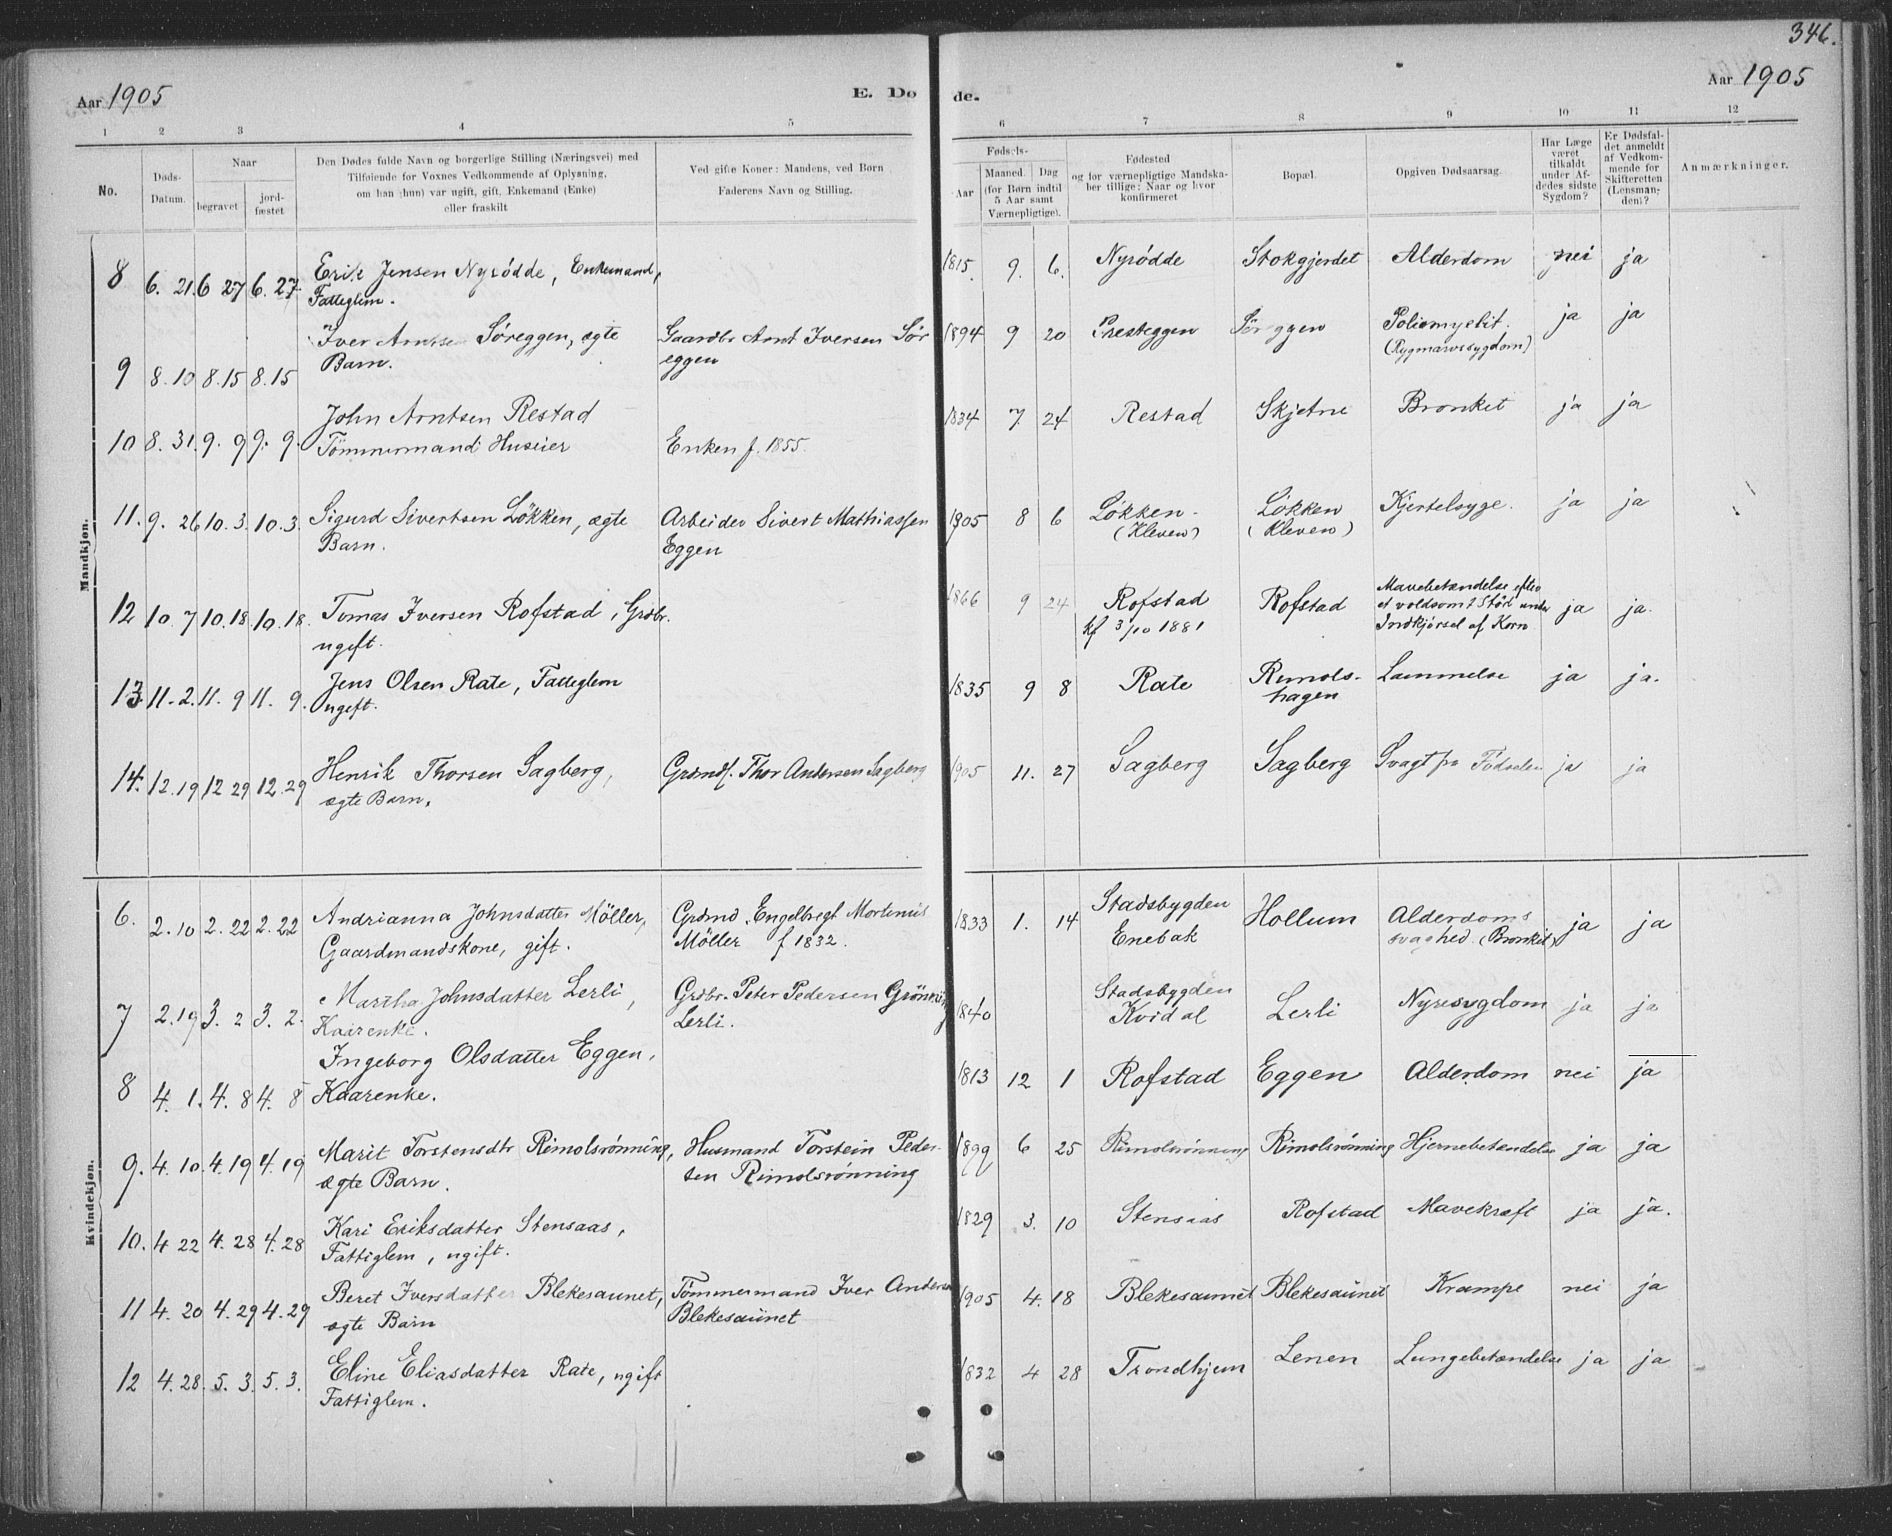 346.
Aar 1905
E. Dø
de.
Aar 1905
1 2 3 4 5 6 7 8 9 10 11 12
No.
Døds-
Datum.
Naar
begravet
jord-
fæstet
Den Dødes fulde Navn og borgerlige Stilling (Næringsvei) med
Tilføiende for Voxnes Vedkommende af Oplysning,
om han (hun) var ugift, gift, Enkemand (Enke)
eller fraskilt
Ved gifte Koner: Mandens, ved Børn
Faderens Navn og Stilling.
Fødsels-
Aar
Maaned. Dag
(for Børn indtil
5 Aar samt
Værnepligtige).
Fødested
og for værnepligtige Mandska-
ber tillige: Naar og hvor
konfirmeret
Bopæl.
Opgiven Dødsaarsag.
Har Læge
været
tilkaldt
under Af-
dødes sidste
Sygdom?
Er Dødsfal-
det anmeldt
af Vedkom-
mende for
Skifteretten
(Lensman-
den)?
Anmærkninger.
Mandkjøn.
8 6. 21. 6 27 6. 27. Erik Jensen Nyrødde, Enkemand, 1815. 9. 6. Nyrødde Stokgjerdet Alderdom nei ja
Fatteglem.
9 8. 10 8. 15 8. 15 Iver Arntsen Søreggen, ægte Gaardbr Arnt Iversen Sør 1894 9 20 Presteggen Søreggen Poliomyelit. ja ja
Barn. eggen (Rygmarvssygdom)
10 8. 31. 9. 9 9. 9. John Arntsen Restad 1834 7. 24 Restad Skjetne Bronkit ja ja
Tømmermand Huseier Enken f. 1855.
11. 9. 26 10. 3. 10. 3. Sigurd Sivertsen Løkken, ægte Arbeider Sivert Mathiassen 1905 8 6 Løkken- Løkken Kjertelsyge. ja ja
Barn. Eggen (Kleven) (Kleven)
12 10. 7 10. 18. 10. 18. Tomas Iversen Rofstad, Grdbr. 1866 9 24 Rofstad Rofstad Mavebetændelse efter ja ja.
ugift. kf 3/10 1881 et voldsomt Stød under
Indkjørsel af Korn
13 11. 2. 11. 9 11. 9. Jens Olsen Rate, Fatteglem 1835 9 8 Rate Rimols- Lammelse ja ja.
ugift. hagen
14. 12. 19 12 29 12. 29 Henrik Thorsen Sagberg, Grdmd. Thor Andersen Sagberg 1905 11. 27 Sagberg Sagberg Svagt fra Fødselen ja ja
ægte Barn.
Kvindekjøn.
6. 2. 10 2. 22 2. 22 Andrianna Johnsdatter Möller, Grdmd. Engelbregt Mortinus 1833 1. 14 Stadsbygden Hollum Alderdoms ja ja
Gaardmandskone, gift. Möller f 1832. Enebak svaghed. (Bronkit)
7 2. 19 3. 2 3. 2. Martha Johnsdatter Lerli, Grdbr. Peter Pedersen 1840 Stadsbygden Lerli Nyresygdom ja ja
Kaarenke. Lerli. Kvidal
8 4. 1. 4. 8 4. 8 Ingeborg Olsdatter Eggen, 1813 12 1 Rofstad Eggen Alderdom nei ja
Kaarenke.
9. 4. 10. 4. 19 4. 19 Marit Torstensdtr Rimolsrønning, Husmand Torstein Peder- 1899 6 25 Rimolsrønning Rimolsrønning Hjernebetændelse ja ja
ægte Barn. sen Rimolsrønning
10. 4 22 4. 28 4. 28 Kari Eriksdatter Stensaas, 1829 3. 10 Stensaas Rofstad Mavekræft ja ja.
Fattiglem, ugift.
11 4. 20 4. 29 4. 29 Beret Iversdatter Blekesaunet, Tømmermand Iver Anders 1905 4. 18 Blekesaunet Blekesaunet Krampe nei ja
ægte Barn Blekesaunet
12 4. 28. 5. 3. 5. 3. Eline Eliasdatter Rate, ugift 1832 4 28 Trondhjem Lenen Lungebetændelse ja ja
Fattiglem.